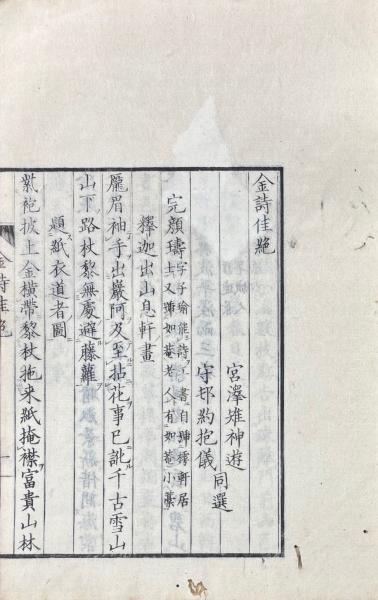 金詩佳絶
宮澤雉神遊
守邨約抱儀
同選
完顔璹
字子瑜能詩工書自號樗軒居
士又號如菴老人有如菴小藁
釋迦出山息軒畫
龎眉袖手出巖阿及至拈花事已訛千古雪山
山下路杖藜無處避藤蘿
題紙衣道者圖
紫袍披上金横帶藜杖拖来紙掩襟富貴山林
金詩佳絶
一